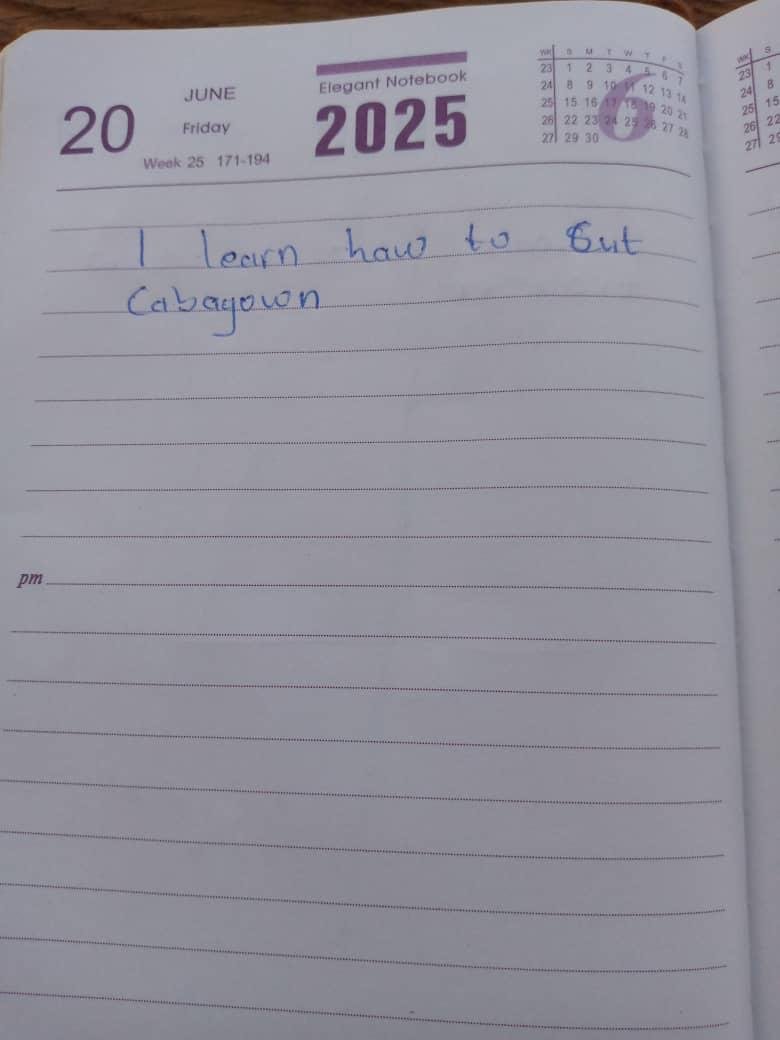 20
JUNE
Friday
Week 25 171-194
Elegant Notebook
2025
WK S M T W T F S
23 1 2 3 4 5 6 7
24 8 9 10 11 12 13 14
25 15 16 17 18 19 20 21
26 22 23 24 25 26 27 28
27 29 30
6
WK S
23 1
24 8
25 15
26 22
27 29
I learn haw to Cut
Cabagown
pm